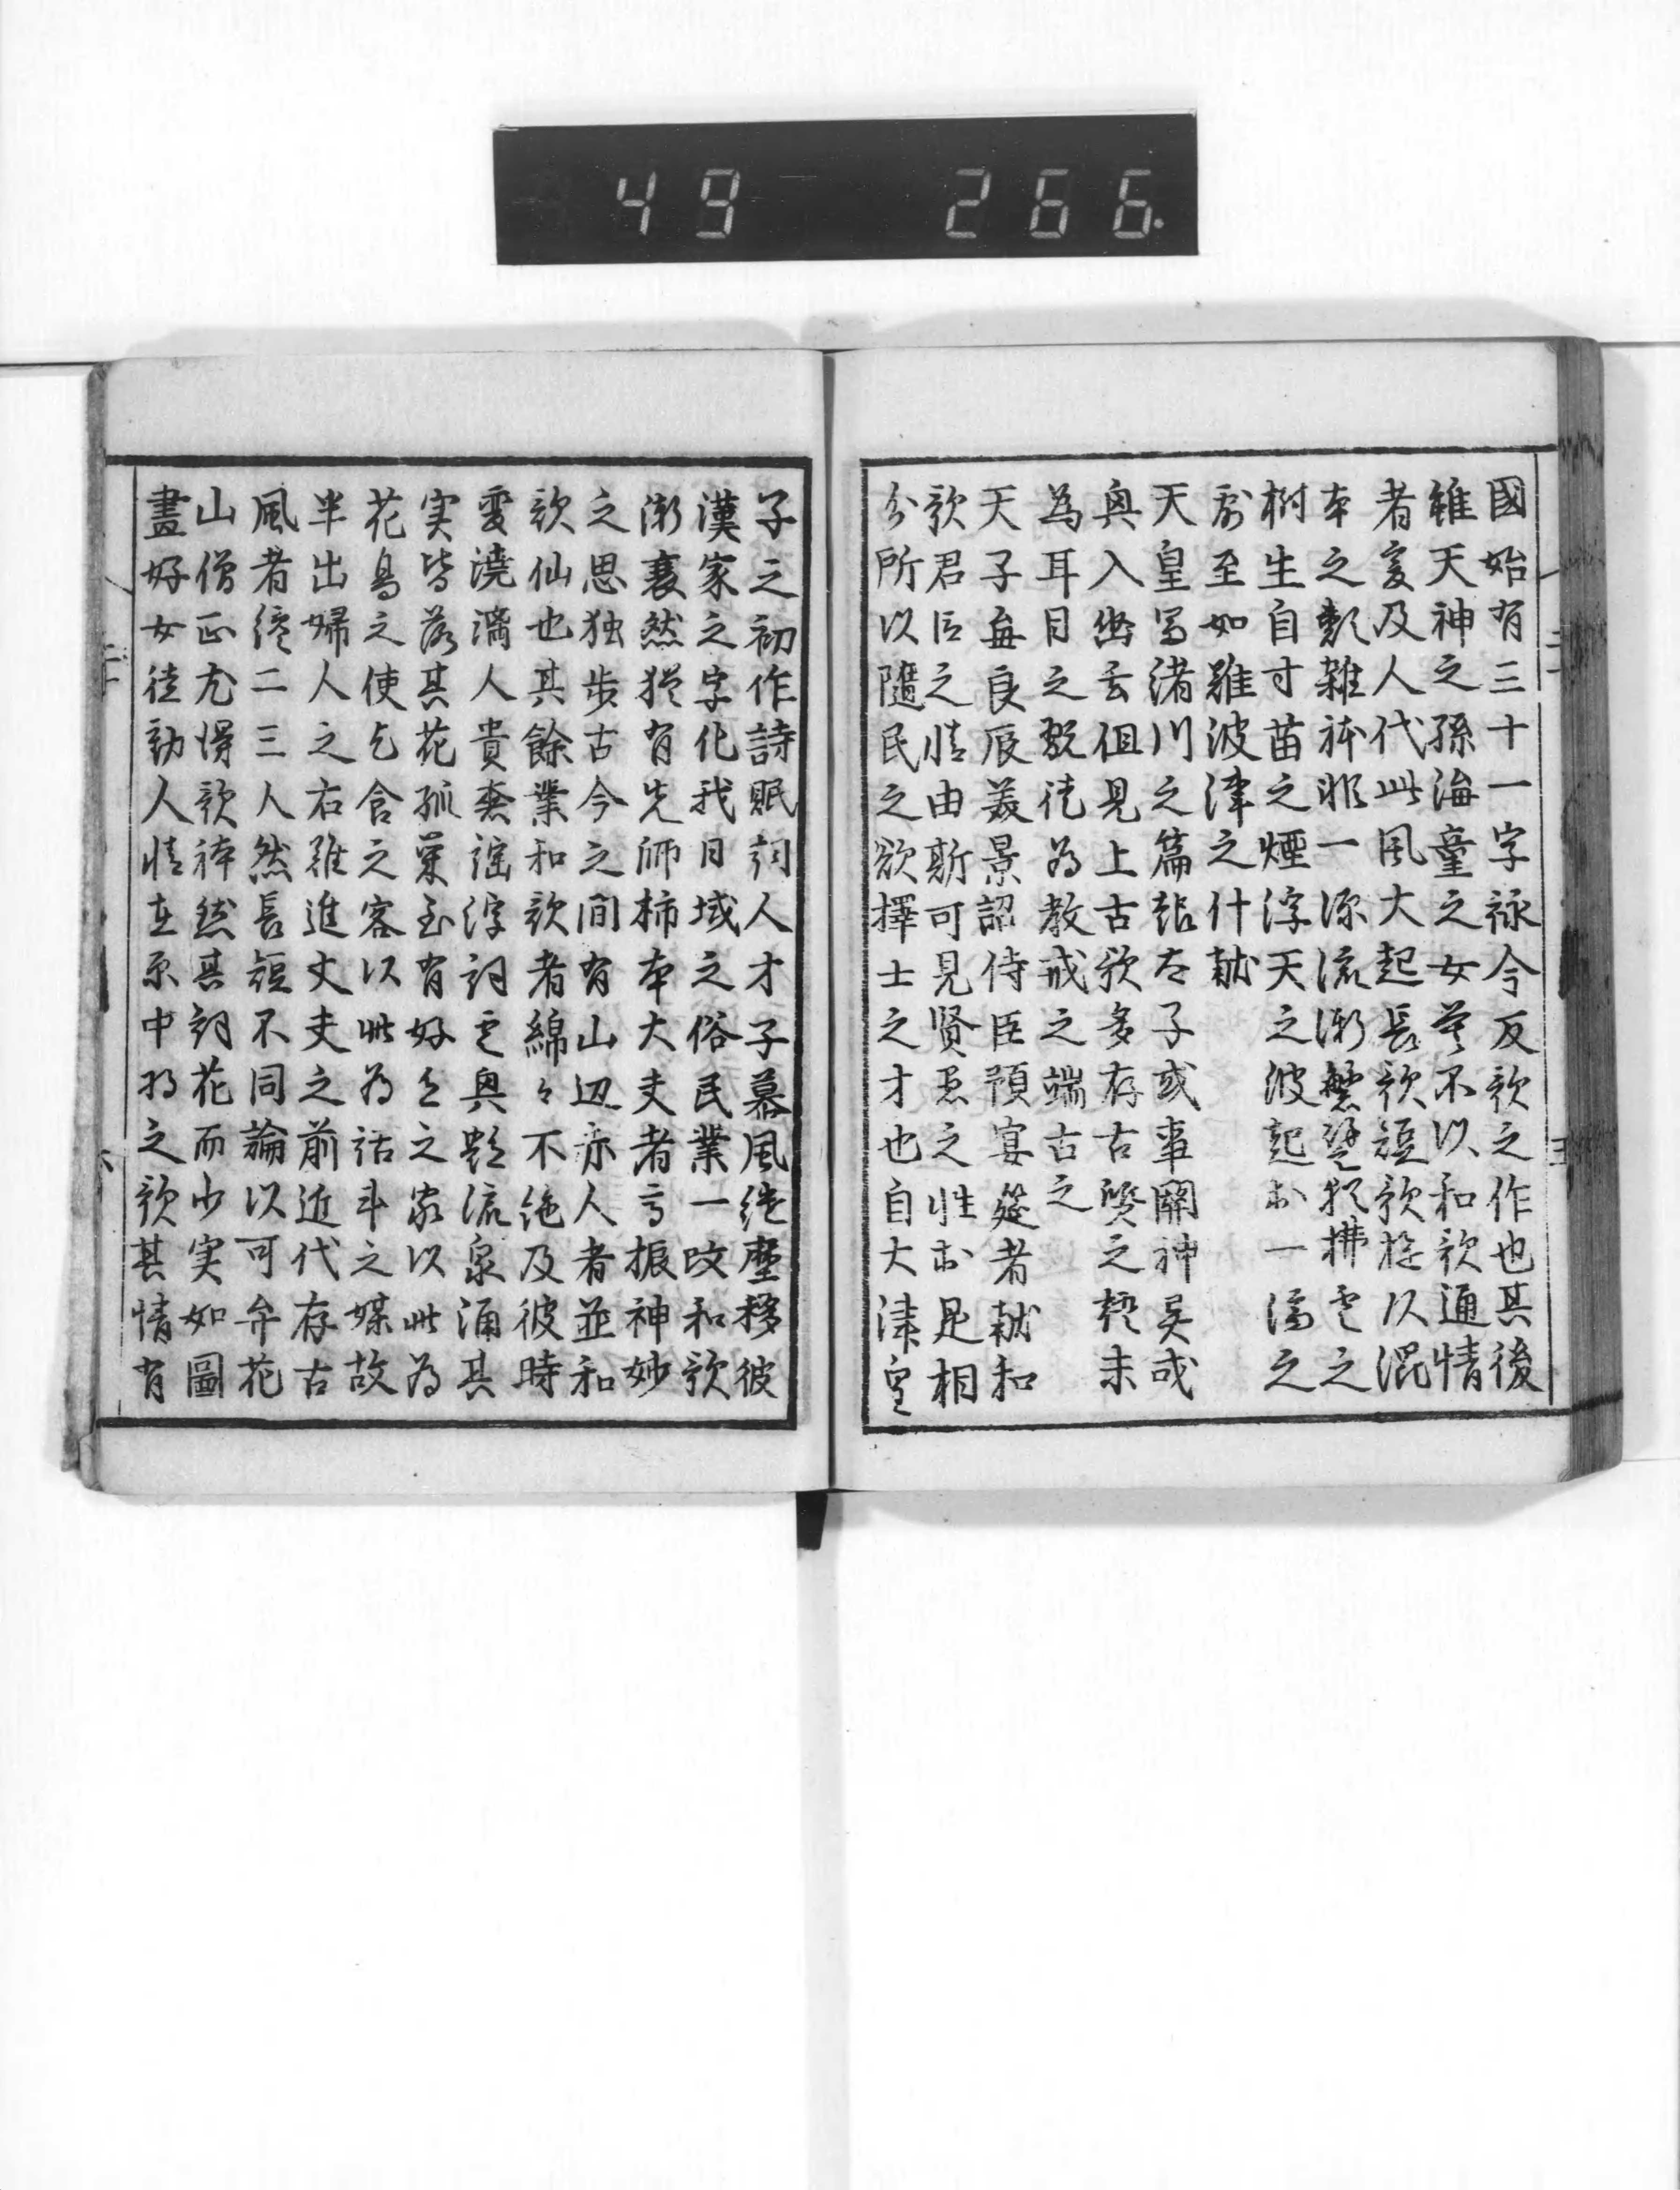 49 266.
國始有三十一字詠今反歌之作也其後
雖天神之孫海童之女莫不以和歌通情
者爰及人代此風大起長歌短歌旋以混
本之類雜体非一源流漸繁譬猶拂雲之
樹生自寸苗之煙浮天之波起於一滴之
露至如難波津之什献
天皇冨渚川之篇報太子或事關神異或
興入幽玄但見上古歌多存古質之語未
為耳目之翫徒為教戒之端古之
天子毎良辰美景詔侍臣預宴莚者献和
歌君臣之情由斯可見賢愚之性於是相
分所以隨民之欲擇士之才也自大津皇
子之初作詩賦詞人才子慕風継塵移彼
漢家之字化我日域之俗民業一改和歌
漸衰然猶有先師柿本大夫者高振神妙
之思独歩古今之間有山辺亦人者並和
歌仙也其餘業和歌者綿々不絶及彼時
変澆漓人貴奢淫浮詞雲興艶流泉涌其
実皆落其花孤栄至有好色之家以此為
花鳥之使乞食之客以此為活斗之媒故
半出婦人之右難進丈夫之前近代存古
風者纔二三人然長短不同論以可弁花
山僧正尤得歌体然其詞花而少実如圖
畫好女徒動人情在原中将之歌其情有
二上 五
六